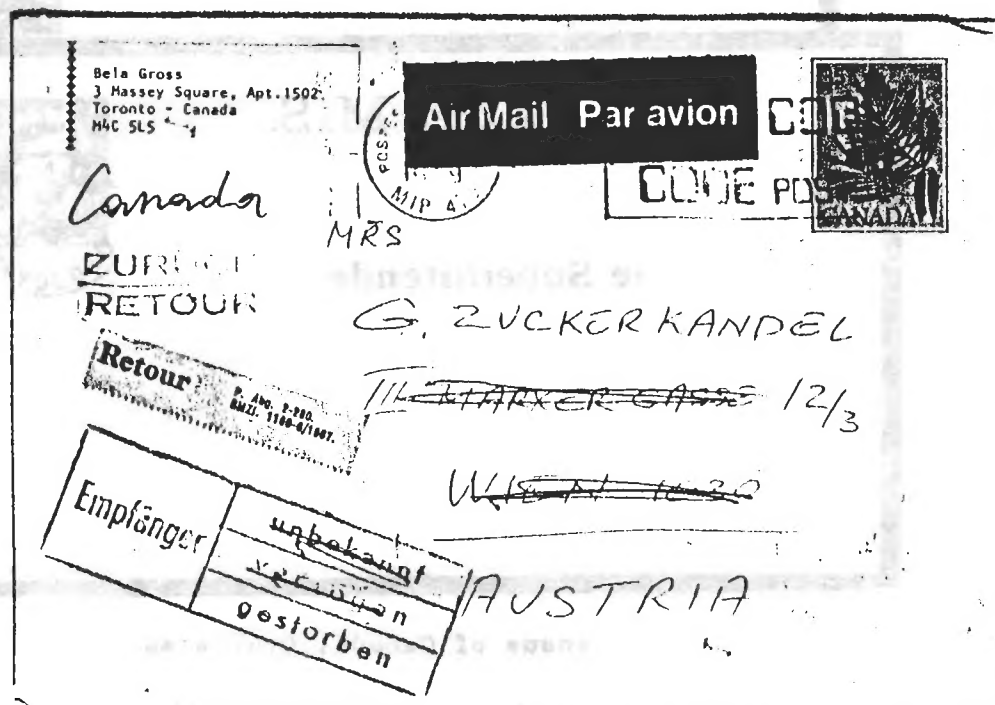 Bela Gross
3 Massey Square, Apt.1502
Toronto - Canada
M4C 5L5
Canada
Air Mail Par avion
CODE
CODE
CANADA
MRS
ZURÜCK
RETOUR
G. ZUCKERKANDEL
III MARXERGASSE 12/3
WIEN 1030
AUSTRIA
Retour
P. Abg. 2-280.
Empfänger
unbekannt
verzogen
gestorben